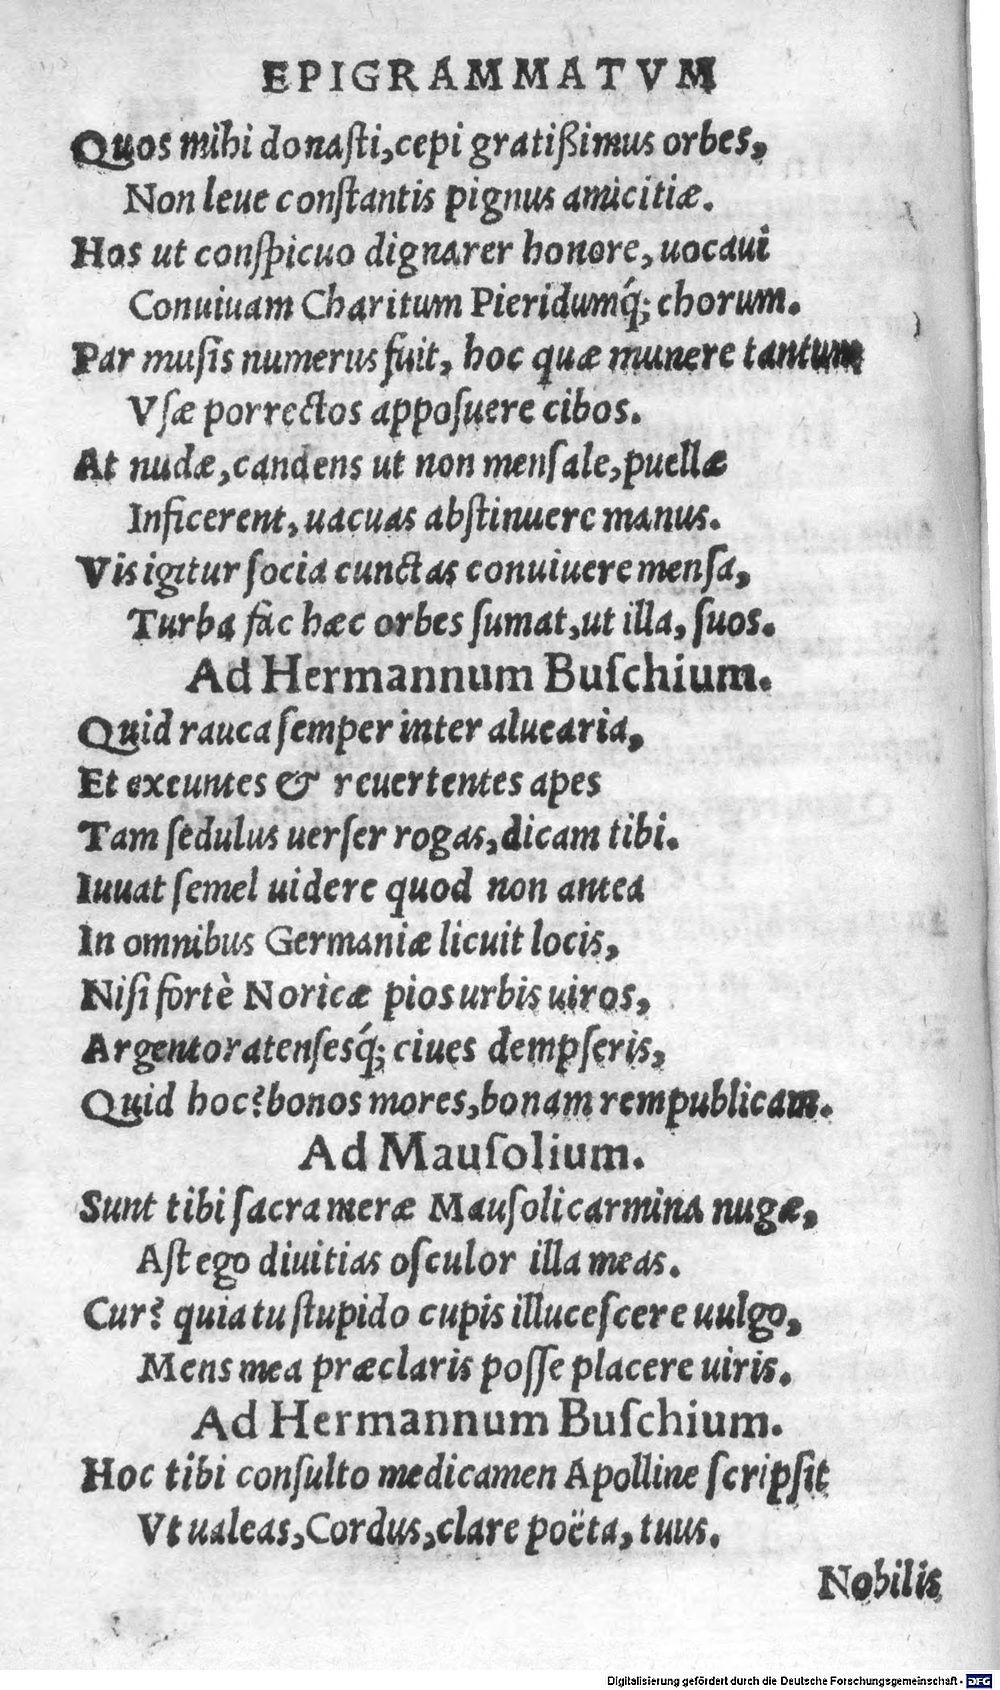 EPIGRAMMATVM
Quos mihi donaſti, cepi gratißimus orbes,
Non leue conſtantis pignus amicitiæ.
Hos ut conſpicuo dignarer honore, uocaui
Conuiuam Charitum Pieridumq́; chorum.
Par muſis numerus fuit, hoc quæ munere tantum
Vſæ porrectos appoſuere cibos.
At nudæ, candens ut non menſale, puellæ
Inficerent, uacuas abſtinuere manus.
Vis igitur ſocia cunctas conuiuere menſa,
Turba fac hæc orbes ſumat, ut illa, ſuos.
Ad Hermannum Buſchium.
Quid rauca ſemper inter aluearia,
Et exeuntes & reuertentes apes
Tam ſedulus uerſer rogas, dicam tibi.
Iuuat ſemel uidere quod non antea
In omnibus Germaniæ licuit locis,
Niſi fortè Noricæ pios urbis uiros,
Argentoratenſesq́; ciues dempſeris,
Quid hoc? bonos mores, bonam rempublicam.
Ad Mauſolium.
Sunt tibi ſacra meræ Mauſoli carmina nugæ,
Aſt ego diuitias oſculor illa meas.
Cur? quia tu ſtupido cupis illuceſcere uulgo,
Mens mea præclaris poſſe placere uiris.
Ad Hermannum Buſchium.
Hoc tibi conſulto medicamen Apolline ſcripſit
Vt ualeas, Cordus, clare poëta, tuus.
Nobilis
Digitalisierung gefördert durch die Deutsche Forschungsgemeinschaft - DFG